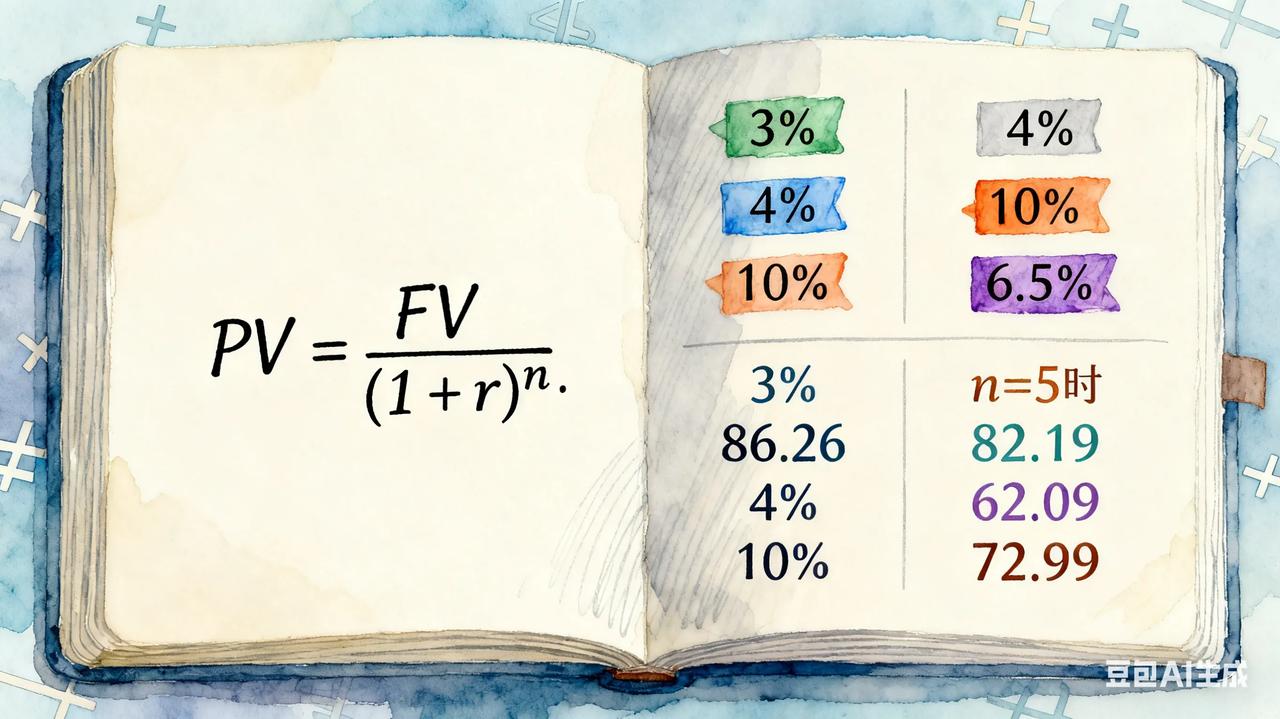 PV = FV / (1 + r)^n.
3%
4%
10%
4%
10%
6.5%
3%
86.26
4%
10%
n=5时
82.19
62.09
72.99
豆包AI生成